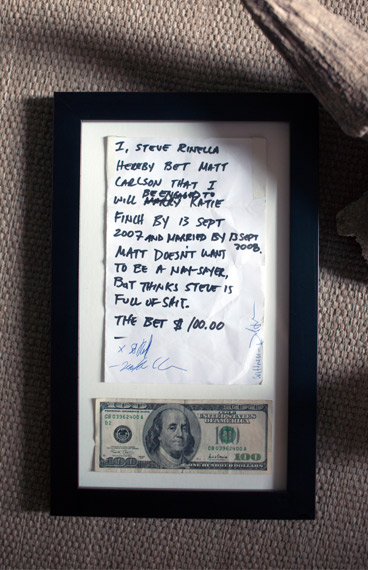 I, STEVE RINELLA
HEREBY BET MATT
CARLSON THAT I
BE ENGAGED TO
WILL MARRY KATIE
FINCH BY 13 SEPT
2007 AND MARRIED BY 13 SEPT
2008.
MATT DOESN'T WANT
TO BE A NAY-SAYER,
BUT THINKS STEVE IS
FULL OF SHIT.
THE BET $100.00
THE UNITED STATES
OF AMERICA
CB 03962400 A
B2
CB 03962400 A
100
100
ONE HUNDRED DOLLARS